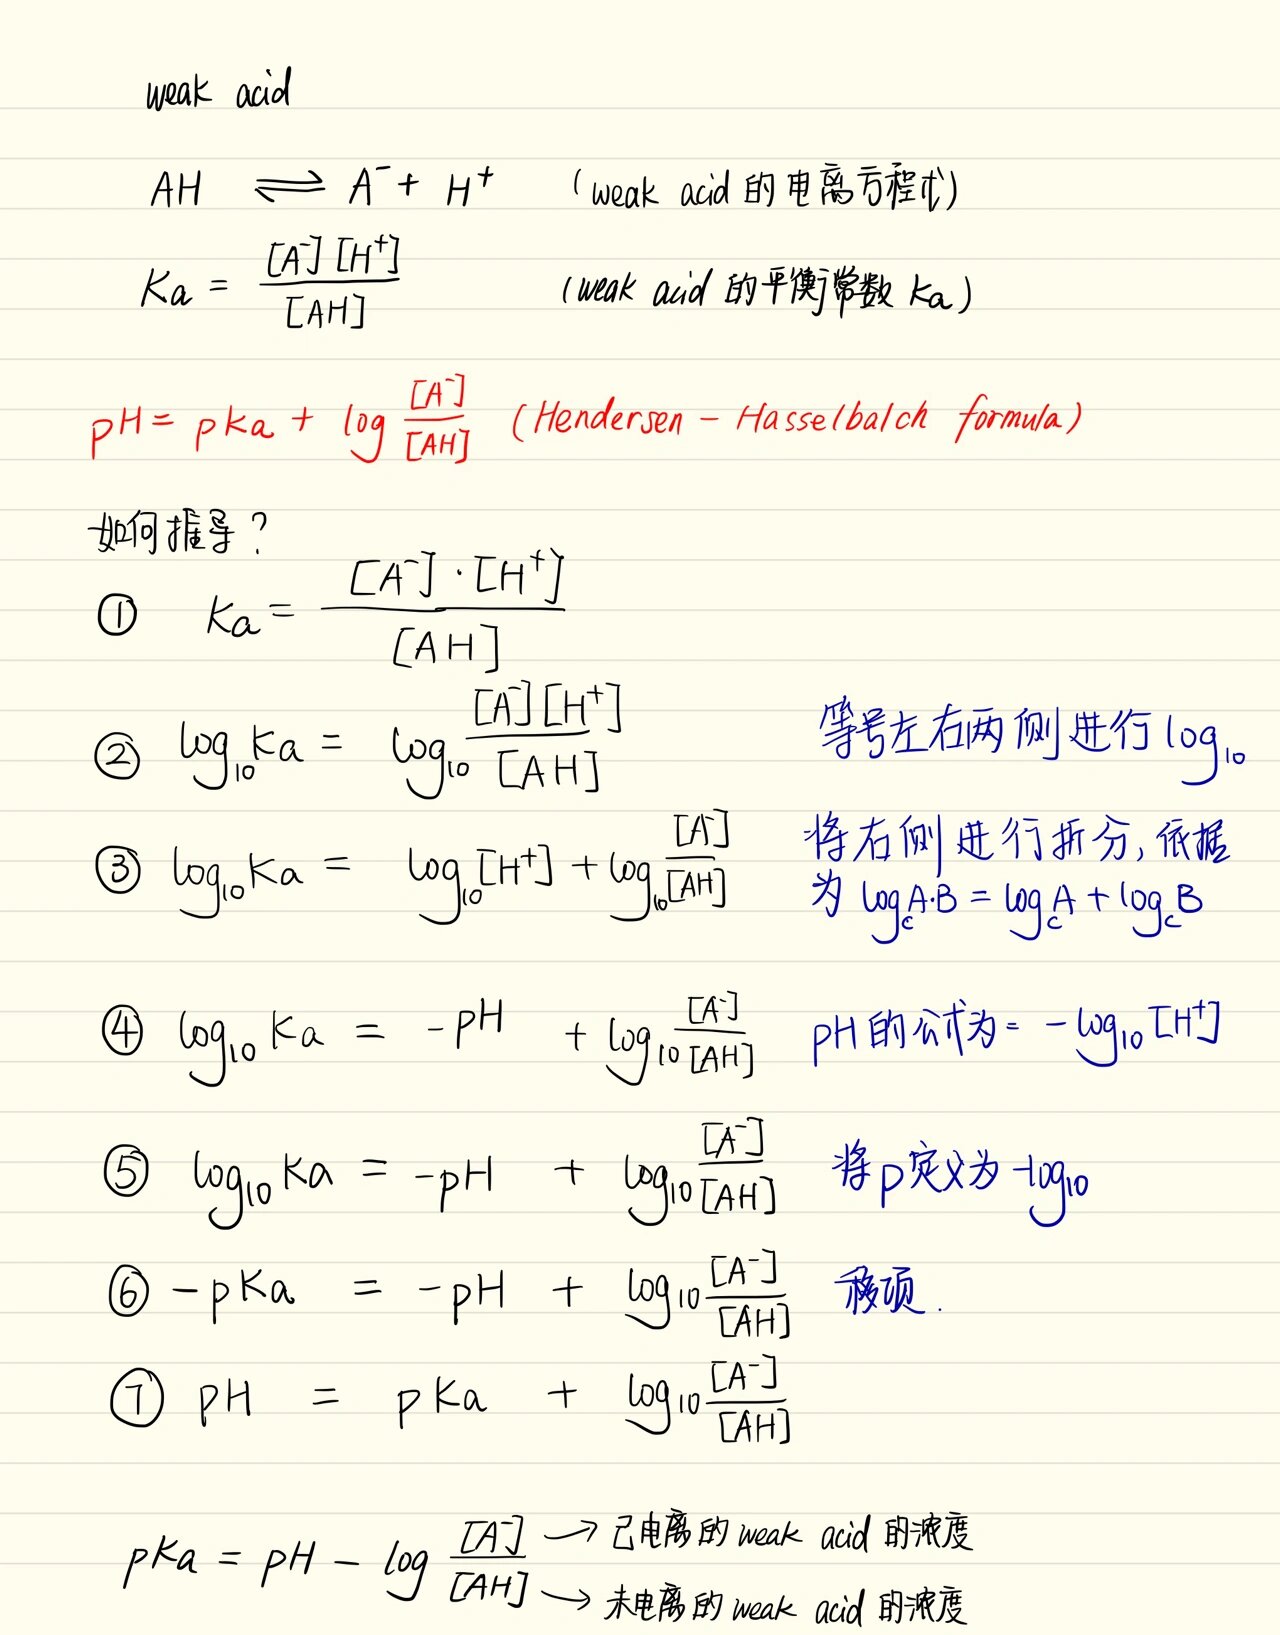 weak acid
AH ⇌ A⁻ + H⁺ (weak acid 的电离方程式)
Ka = [A⁻][H⁺] / [AH] (weak acid 的平衡常数 Ka)
pH = pKa + log [A⁻] / [AH] (Hendersen - Hasselbalch formula)
如何推导?
① Ka = [A⁻]·[H⁺] / [AH]
② log₁₀Ka = log₁₀ [A⁻][H⁺] / [AH] 等号左右两侧进行 log₁₀
③ log₁₀Ka = log₁₀[H⁺] + log₁₀ [A⁻] / [AH] 将右侧进行拆分, 依据
为 log_c A·B = log_c A + log_c B
④ log₁₀Ka = -pH + log₁₀ [A⁻] / [AH] pH 的公式为 = -log₁₀[H⁺]
⑤ log₁₀Ka = -pH + log₁₀ [A⁻] / [AH] 将p定义为 -log₁₀
⑥ -pKa = -pH + log₁₀ [A⁻] / [AH] 移项.
⑦ pH = pKa + log₁₀ [A⁻] / [AH]
pKa = pH - log [A⁻] / [AH] → 已电离的 weak acid 的浓度
→ 未电离的 weak acid 的浓度